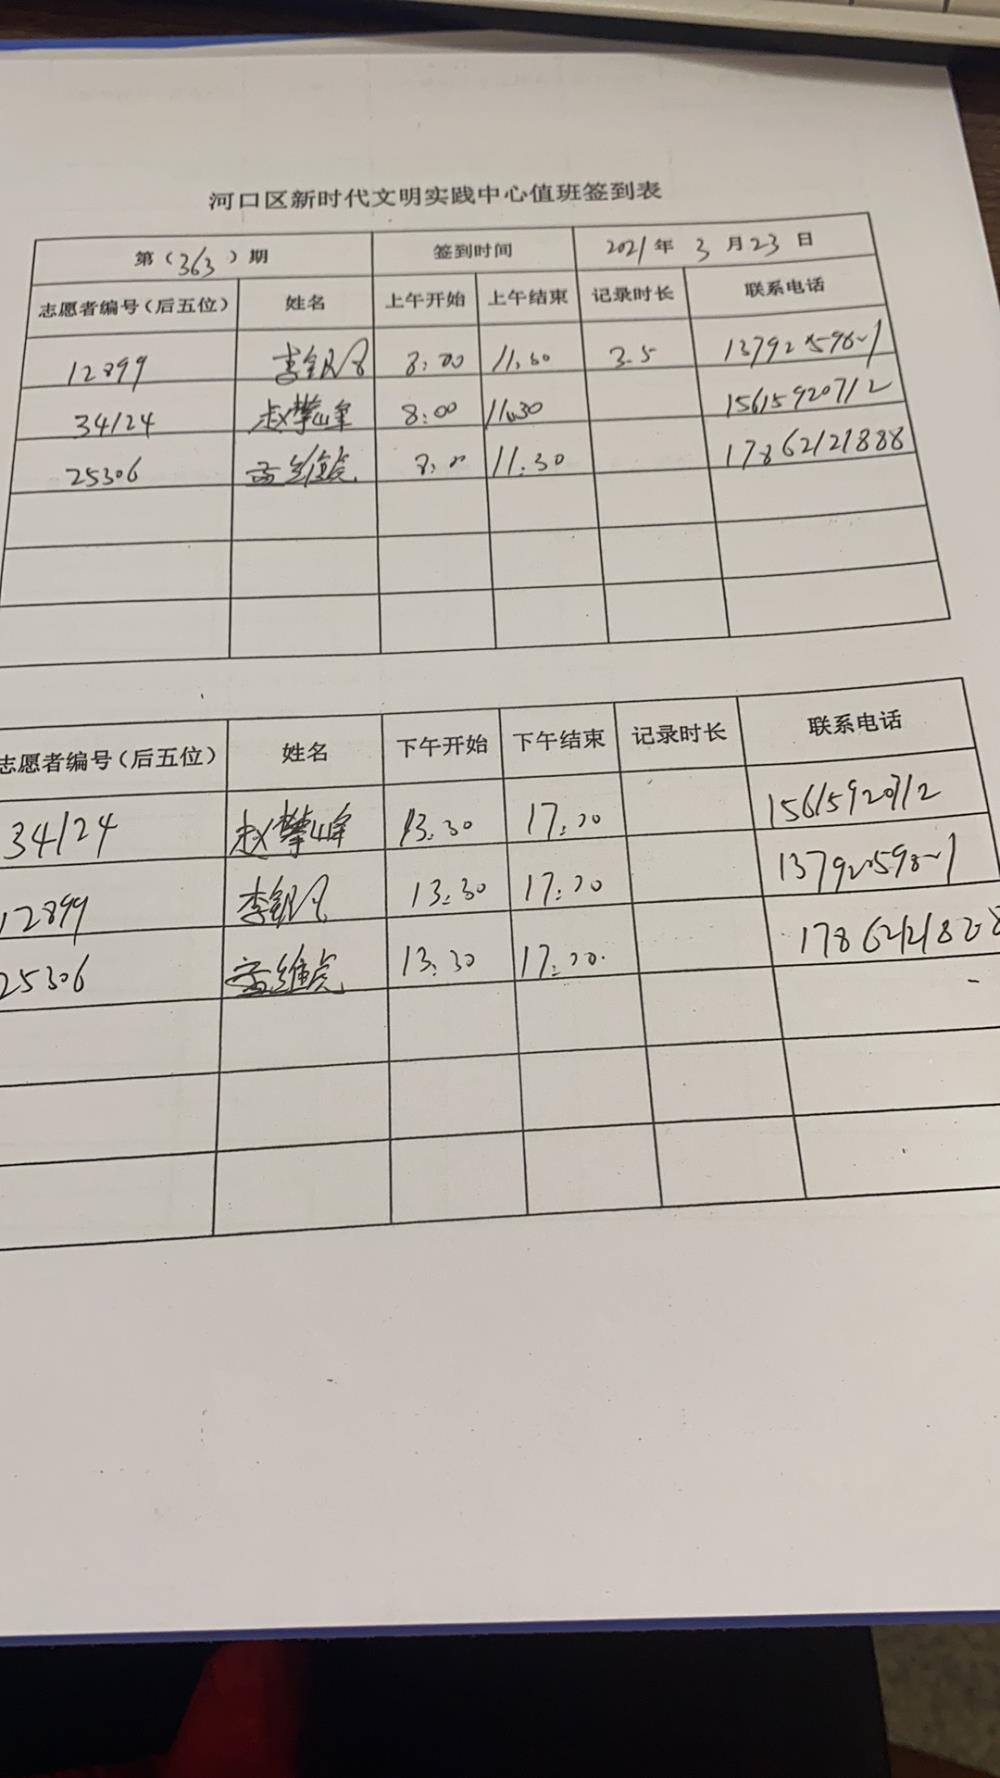 河口区新时代文明实践中心值班签到表
第（363）期 签到时间 2021年 3 月 23 日
志愿者编号（后五位） 姓名 上午开始 上午结束 记录时长 联系电话
12899 8:00 11:30 3.5
34124 赵攀峰 8:00 11:30 15615920712
25306 孟维 8:00 11:30 17862121888
志愿者编号（后五位） 姓名 下午开始 下午结束 记录时长 联系电话
34124 赵攀峰 13:30 17:00 15615920712
12899 李 13:30 17:00
25306 孟维 13:30 17:00